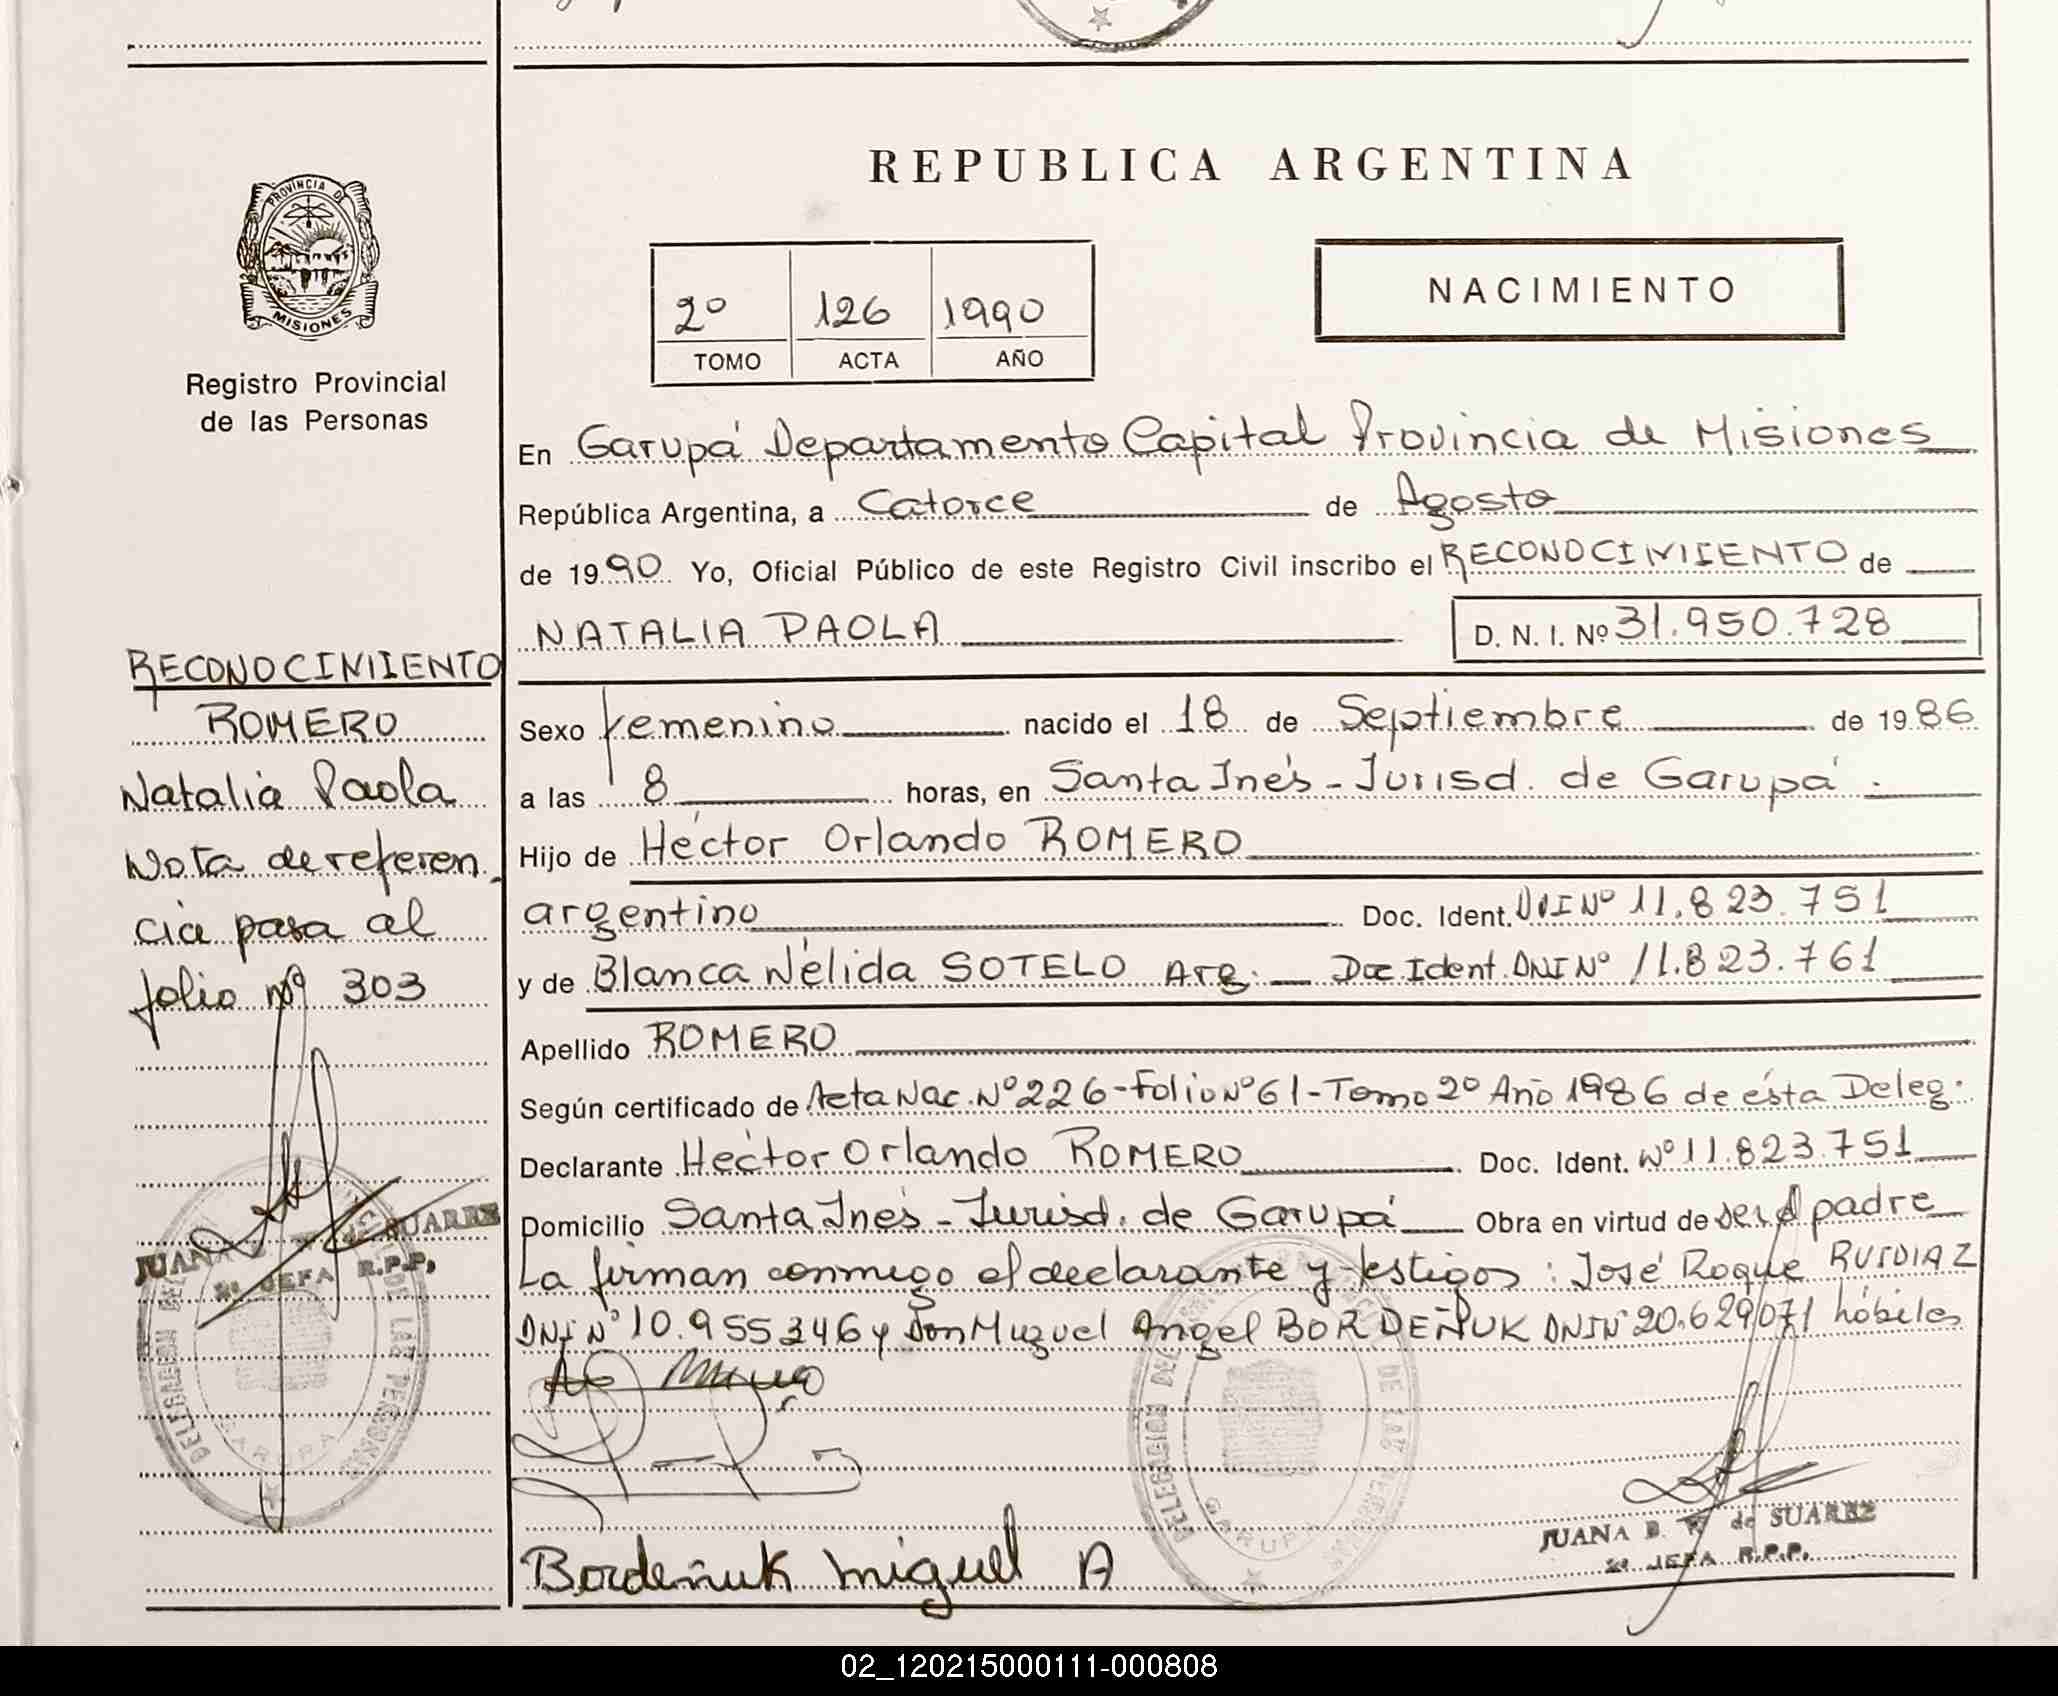 REPUBLICA ARGENTINA
PROVINCIA DE
MISIONES
Registro Provincial
de las Personas
2º 126 1990
TOMO ACTA AÑO
NACIMIENTO
En Garupá Departamento Capital Provincia de Misiones
República Argentina, a Catorce de Agosto
de 1990 Yo, Oficial Público de este Registro Civil inscribo el RECONOCIMIENTO de
NATALIA PAOLA D. N. I. Nº 31.950.728
Sexo femenino nacido el 18 de Septiembre de 1986
a las 8 horas, en Santa Inés - Jurisd. de Garupá.
Hijo de Héctor Orlando ROMERO
argentino Doc. Ident. DNI Nº 11.823.751
y de Blanca Nélida SOTELO Arg. Doc. Ident. DNI Nº 11.823.761
Apellido ROMERO
Según certificado de Acta Nac. Nº 226 - Folio Nº 61 - Tomo 2º Año 1986 de ésta Deleg.
Declarante Héctor Orlando ROMERO Doc. Ident. Nº 11.823.751
Domicilio Santa Inés - Jurisd. de Garupá Obra en virtud de ser el padre
La firman conmigo el declarante y testigos: José Roque RUIDIAZ
DNI Nº 10.955346 y Don Miguel Angel BORDEÑUK DNI Nº 20.629071 hábiles
Bordeñuk Miguel A
DELEGACION DEL DE LAS PERSONAS
GARUPA
JUANA B. de SUAREZ
2ª JEFA R.P.P.
RECONOCIMIENTO
ROMERO
Natalia Paola
Nota de referen
cia pasa al
folio nº 303
JUANA SUAREZ
2ª JEFA R.P.P.
DELEGACION DEL DE LAS PERSONAS
GARUPA
02_120215000111-000808